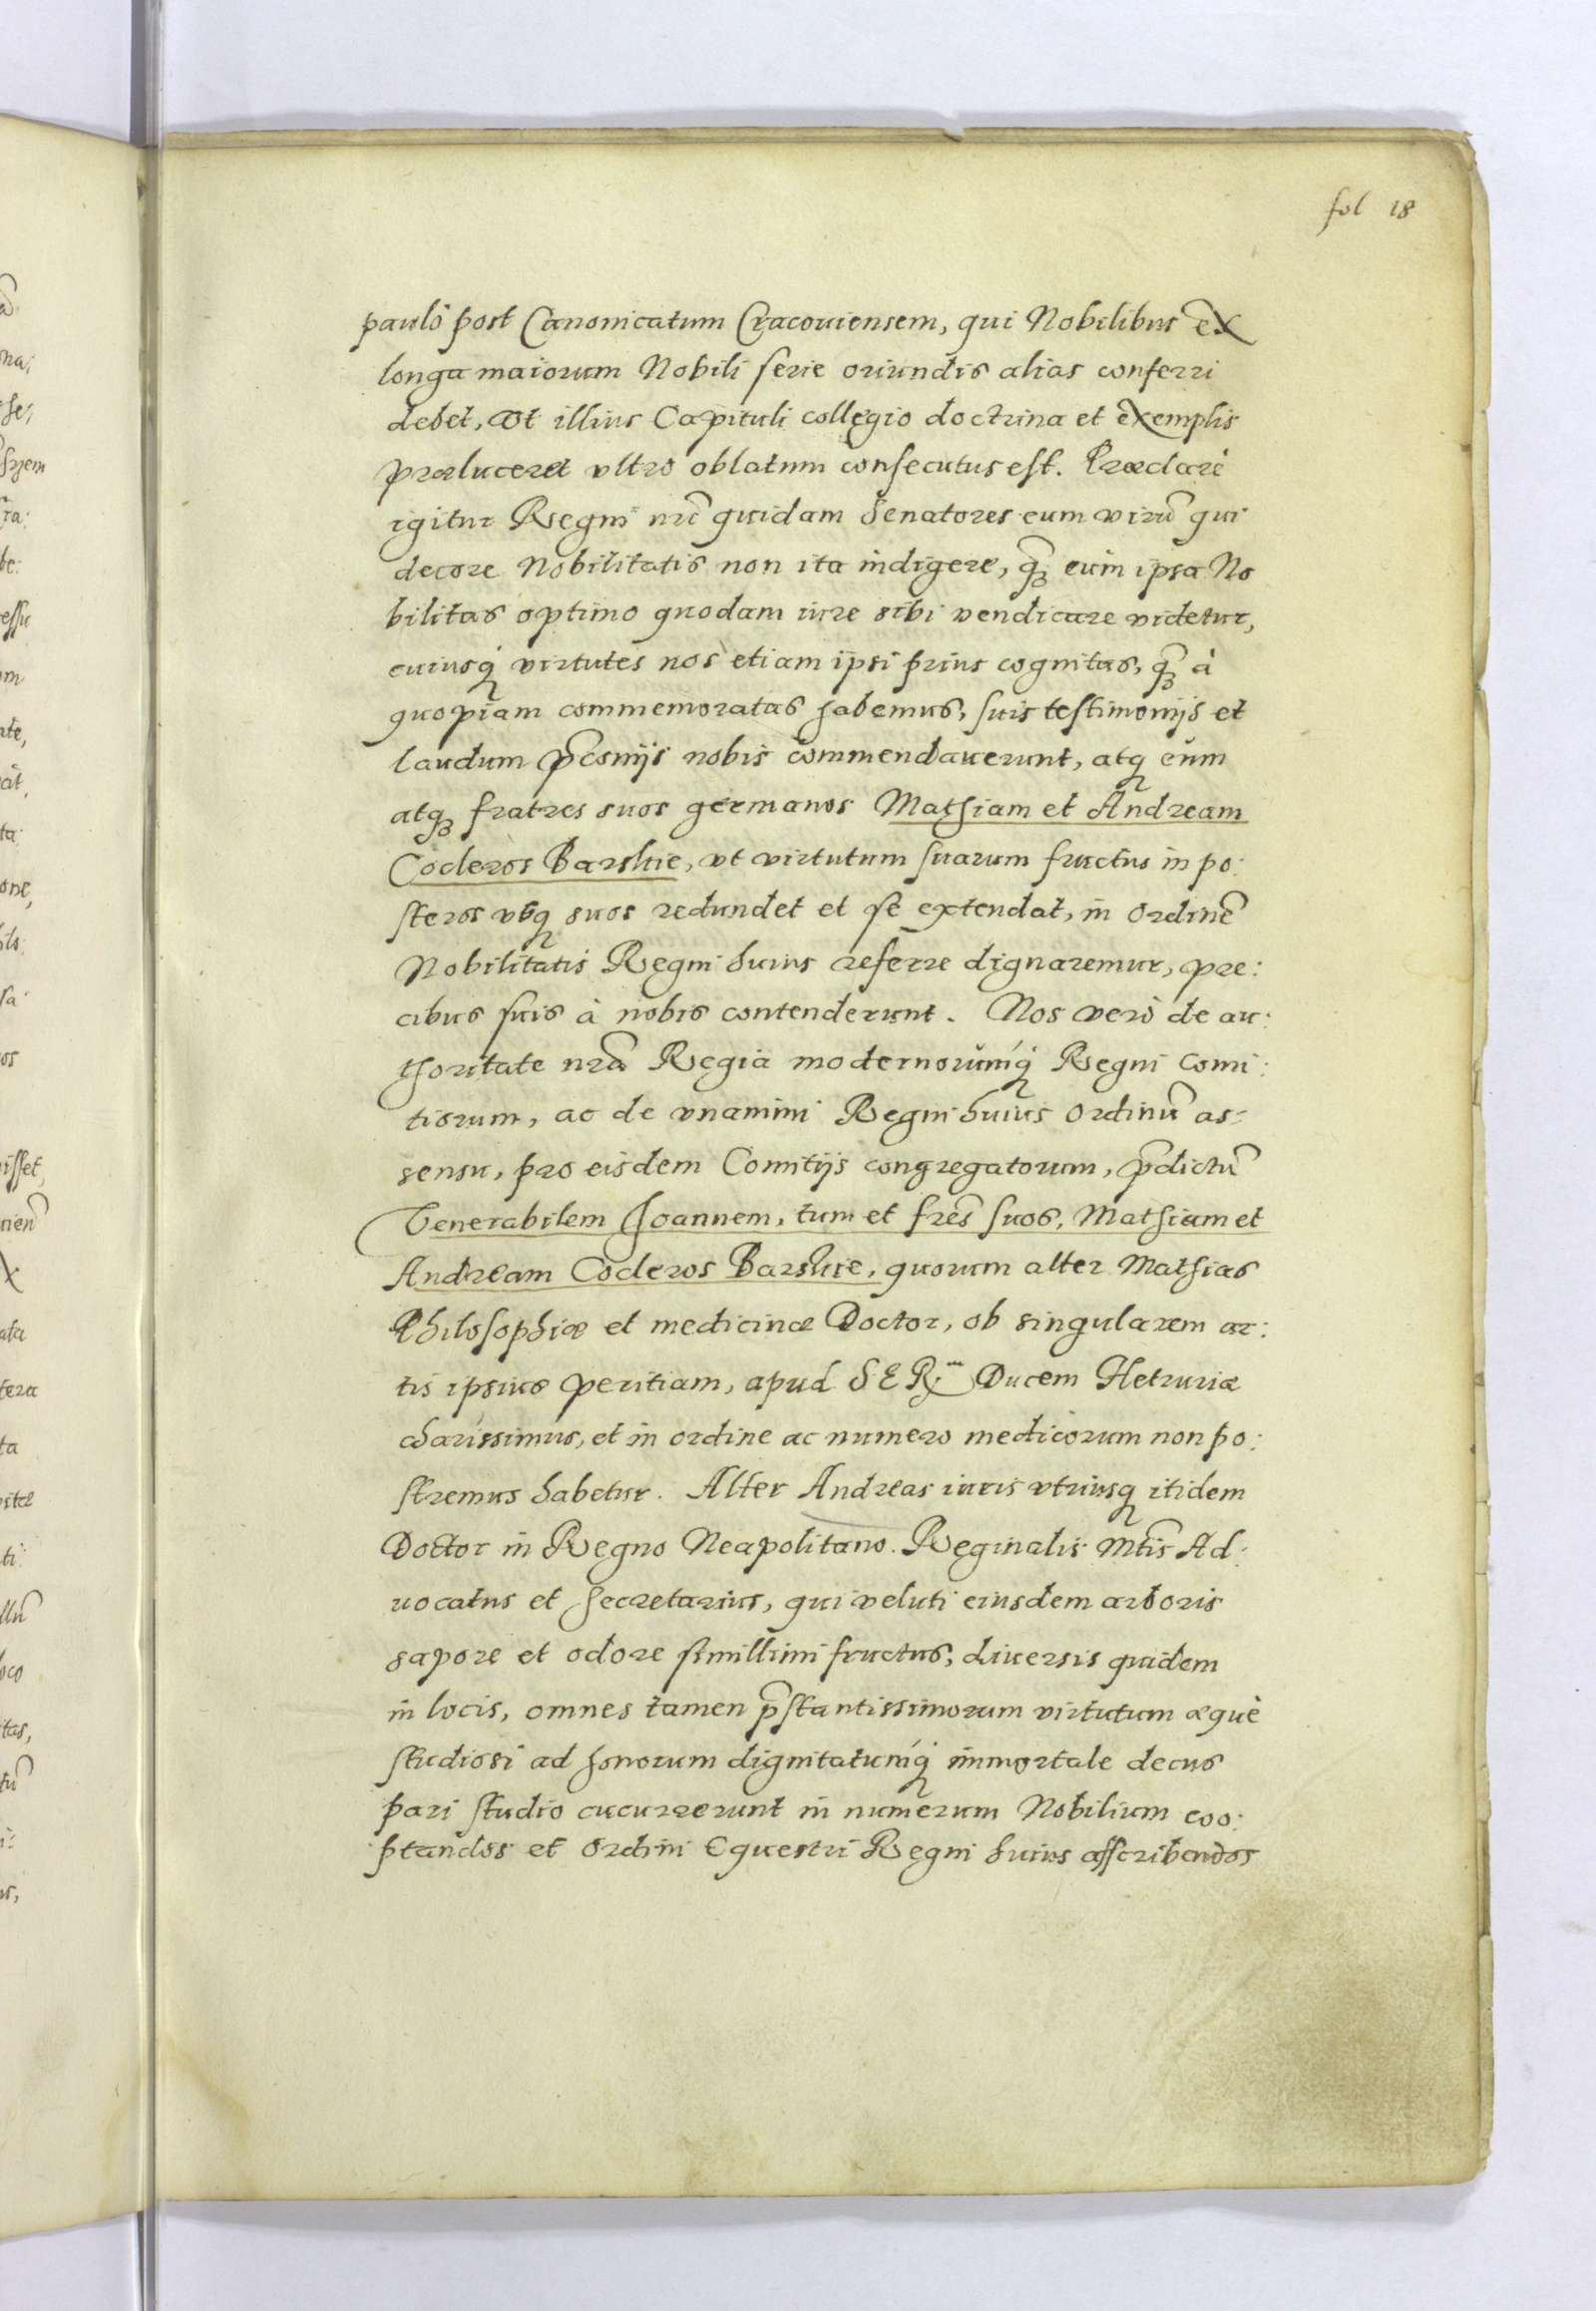 fol 18
paulò post Canonicatum Cracouiensem, qui Nobilibus ex
longa maiorum Nobili serie oriundis alias conferri
debet, vt illius Capituli collegio doctrina et exemplis
præluceret vltro oblatum consecutus est. Præclarè
igitur Regni nrĩ quidam Senatores eum virũ qui
decore Nobilitatis non ita indigere, q̃ꝫ eum ipsa No
bilitas optimo quodam iure sibi vendicare videtur,
cuiusq́ virtutes nos etiam ipsi prius cognitas, q̃ꝫ à
quopiam commemoratas habemus, suis testimonijs et
laudum p̃conijs nobis commendauerunt, atq eum
atqꝫ fratres suos germanos Mathiam et Andream
Coderos Barskie, vt virtutum suarum fructus in po:
steros vsq suos redundet et se extendat, in Ordinẽ
Nobilitatis Regni huius referre dignaremur, pre:
cibus suis à nobis contenderunt. Nos verò de au:
thoritate nrã Regia modernorumq́ Regni Comi:
tiorum, ac de vnanimi Regni huius Ordinũ as:
sensu, pro eisdem Comitijs congregatorum, p̃dictũ
Venerabilem Joannem, tum et fres̃ suos, Mathiam et
Andream Coderos Barskie, quorum alter Mathias
Philosophiæ et medicinæ Doctor, ob singularem ar:
tis ipsius peritiam, apud SER.m Ducem Hetruriæ
charissimus, et in ordine ac numero medicorum non po:
stremus habetur. Alter Andreas iuris vtriusq itidem
Doctor in Regno Neapolitano. Reginalis Mtis̃ Ad:
uocatus et Secretarius, qui veluti eiusdem arboris
sapore et odore simillimi fructus, diuersis quidem
in locis, omnes tamen p̃stantissimorum virtutum æquè
studiosi ad honorum dignitatumq́ immortale decus
pari studio cucurrerunt in numerum Nobilium coo:
ptandos et Ordini Equestri Regni huius asscribendos